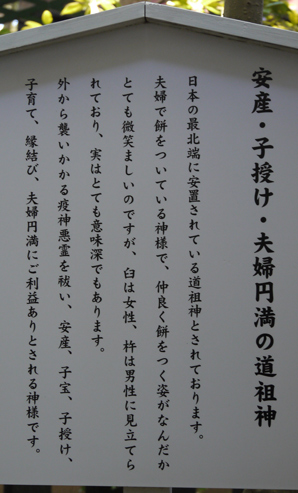 安産・子授け・夫婦円満の道祖神
日本の最北端に安置されている道祖神とされております。
夫婦で餅をついている神様で、仲良く餅をつく姿がなんだか
とても微笑ましいのですが、臼は女性、杵は男性に見立てら
れており、実はとても意味深でもあります。
外から襲いかかる疫神悪霊を祓い、安産、子宝、子授け、
子育て、縁結び、夫婦円満にご利益ありとされる神様です。